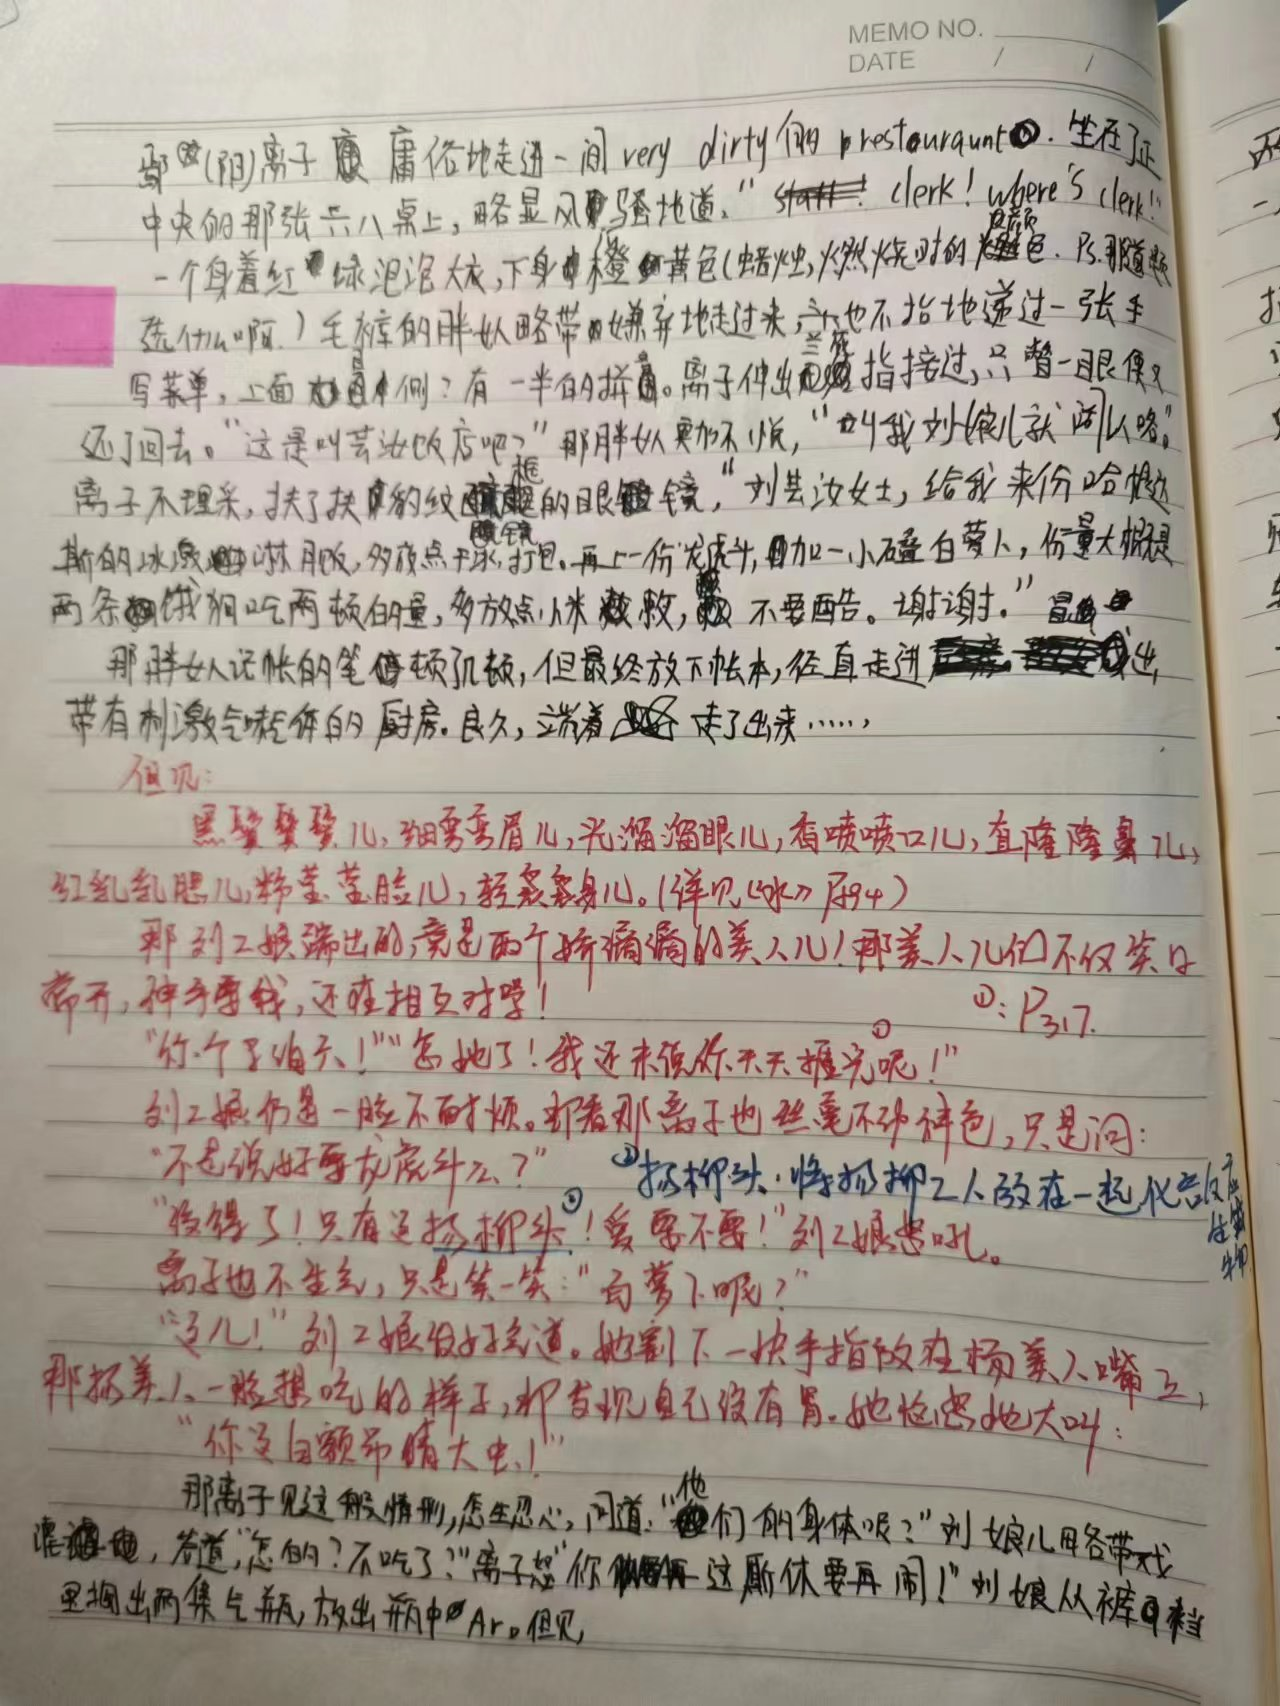 MEMO NO.
DATE / /
(阴)离子 庸俗地走进一间 very dirty 的 restouraunt. 坐在了正
中央的那张六八桌上，略显风骚地道，“clerk! where's clerk!”
一个身着红绿泡泡大衣，下身橙黄色(蜡烛燃烧时的颜色. Ps.那道题
选什么啊.)毛裤的胖女人略带嫌弃地走过来，头也不抬地递过一张手
写菜单，上面 有一半的拼音。离子伸出兰花指接过，只瞥一眼便又
还了回去。“这是叫芸汝饭店吧？”那胖女人更加不悦，“叫我刘娘儿就阔以咯。”
离子不理采，扶了扶豹纹框的眼镜，“刘芸汝女士，给我来份哈根达
斯的冰激淋 ，多放点干冰，打包。再上一份龙虎斗，加一小碟白萝卜，份量大概是
两条饿狗吃两顿的量，多放点小米 ，不要西告。谢谢。”
那胖女人记帐的笔顿了几顿，但最终放下帐本，径直走进
带有刺激气味气体的厨房。良久，端着 走了出来……，
但见：
黑鬒鬒鬓儿，细弯弯眉儿，光溜溜眼儿，香喷喷口儿，直隆隆鼻儿，
红乳乳腮儿，粉莹莹脸儿，轻袅袅身儿。(详见《水》P594)
那刘二娘端出的，竟是两个娇滴滴的美人儿！那美人儿们不仅笑口
常开，神采 ，还在相互对骂！
①：P317.
“你个 ！”“怎地了！我还未说你天天 呢！”①
刘二娘仍是一脸不耐烦。却看那离子也丝毫不动神色，只是问：
“不是说好要龙虎斗么？”
②杨柳头：将杨柳二人放在一起化合反应
生成物
“ 了！只有这杨柳头②！爱要不要！”刘二娘怒吼。
离子也不生气，只是笑一笑：“白萝卜呢？”
“这儿！”刘二娘没好气道。她割下一块手指放在杨美人嘴上，
那杨美人一脸想吃的样子，却发现自己没有胃。她恼怒地大叫：
“你这白额吊睛大虫！”
那离子见这般情形，怎生忍心，问道：“他们的身体呢？”刘娘儿
，答道，“怎的？不吃了？”离子怒“你这厮休要再闹！”刘娘从裤裆
里掏出两集气瓶，放出瓶中Ar。但见，